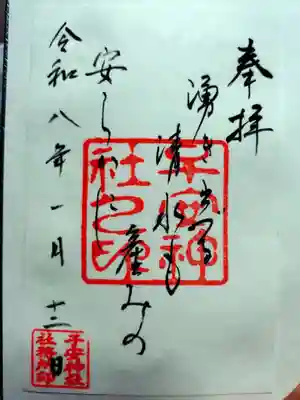 奉拝
湧き出る
清水も
産みの
安らかに
令和八年一月十二日
子安神
社之印
子安神社
社務所印